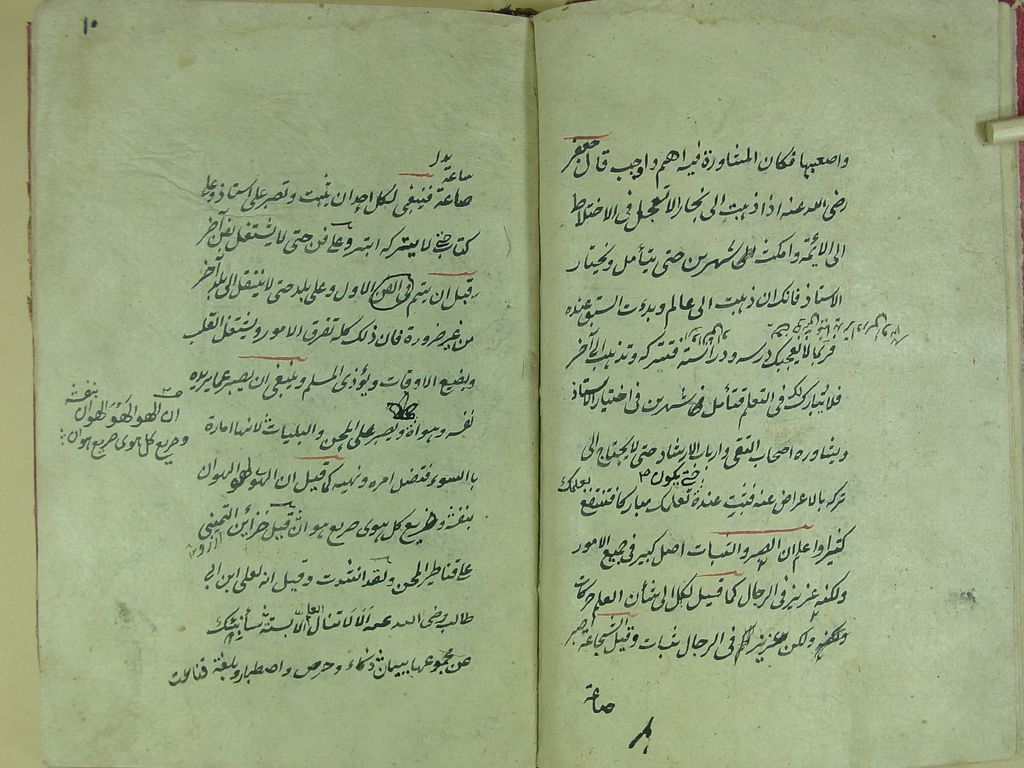 واصعبها فكان المشاورة فيه اهم واوجب قال جعفر
رضى الله عنه اذا ذهبت الى بخارا لا تعجل فى الاختلاط
الى الائمة وامكث شهرين حتى يتأمل وتختار
الاستاذ فانك ان ذهبت الى عالم وبدءت السبق عنده
فربما لا يعجبك درسه ودراسته فتتركه وتذهب الى آخر
فلا يبارك لك فى التعلم فتأمل شهرين فى اختيار الاستاذ
ويشاوره اصحاب التقى وارباب الارشاد حتى لا يحتاج الى
حتى يكون
تركه بالاعراض عنه فتثبت عنده تعلمك مباركا فتنتفع بعلمك
كثيرا واعلم ان الصبر والثبات اصل كبير فى جميع الامور
ولكنه عزيز فى الرجال كما قيل لكل الى شأن العلى حركات
ولكن عزيز فى الرجال ثبات وقيل الشجاعة صبر
صاعة
١٠
بدل
ساعة
صاعة فينبغى لكل احد ان يثبت وتصبر على استاذ وعلى
كتاب حتى لا يتركه ابتر وعلى فن حتى لا يشتغل بفن آخر
قبل ان يتم فى الفن الاول وعلى بلد حتى لا ينتقل الى بلد آخر
من غير ضرورة فان ذلك كله تفرق الامور ويشتغل القلب
ويضيع الاوقات ويؤذى المسلم وينبغى ان يصبر عما يريده
نفسه وهواه ويصبر على المحن والبليات لانها امارة
باالسوء فتضل امره ونهيه كما قيل ان الهوا لهو الهوان
بنفسه وصريع كل هوى صريع هوان قيل خزائن التمنى
على قناطير المحن ولقد انشدت وقيل انه لعلى ابن ابى
طالب رضى الله عنه الا لا تنال العلم الا بستة سأنبئك
عن مجموعها ببيان ذكاء وحرص واصطبار وبلغة
بنفسه
ان الهوا لهو الهوان
وصريع كل هوى صريع هوان